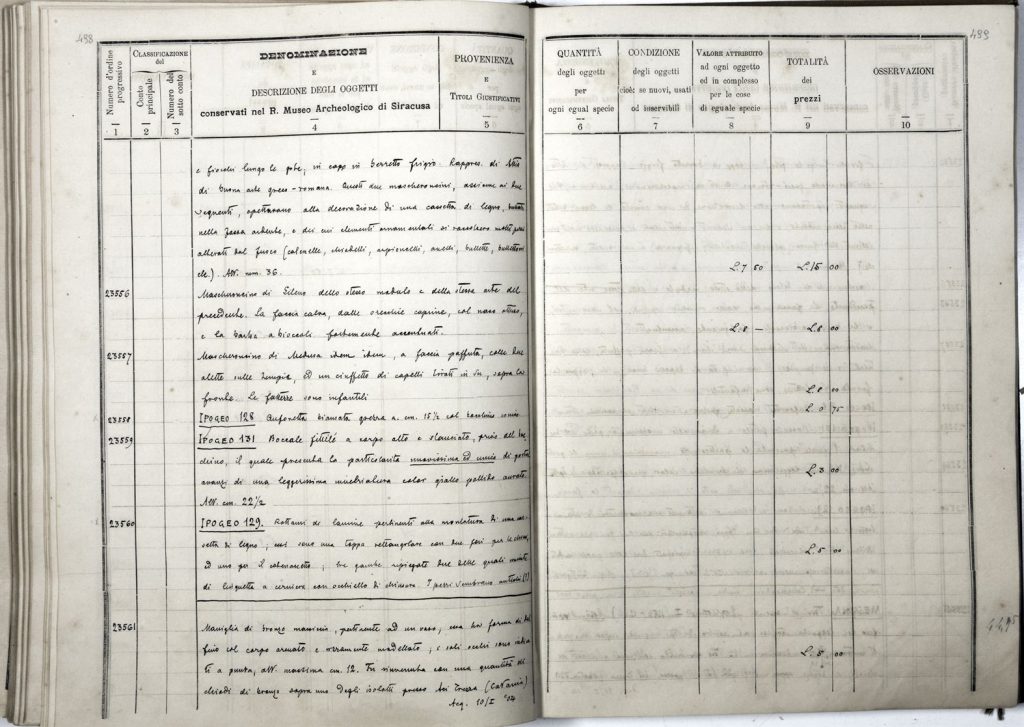 488
489
Numero d'ordine progressivo
Classificazione del
Conto principale
Numero del sotto conto
DENOMINAZIONE
E
DESCRIZIONE DEGLI OGGETTI
conservati nel R. Museo Archeologico di Siracusa
PROVENIENZA
E
Titoli Giustificativi
QUANTITÀ
degli oggetti
per
ogni egual specie
CONDIZIONE
degli oggetti
cioè: se nuovi, usati
od inservibili
Valore attribuito
ad ogni oggetto
ed in complesso
per le cose
di eguale specie
TOTALITÀ
dei
prezzi
OSSERVAZIONI
1 2 3 4 5 6 7 8 9 10
e fiocchi lungo le gote; in capo un berretto frigio. Rappres. di Attis
di buona arte greco-romana. Questi due mascheroncini, assieme ai due
seguenti, spettavano alla decorazione di una cassetta di legno,
nella fossa ardente, e dei cui elementi ornamentali si raccolsero molti pezzi
alterati dal fuoco (catenelle, arpioncelli, anelli, bullette, bullettoni
etc.). Alt. mm. 36. L. 7 50 L. 15 00
23556 Mascheroncino di Sileno dello stesso modulo e della stessa arte del
precedente. La faccia calva, dalle orecchie caprine, col naso
e la barba a bioccoli fortemente accentuati. L. 8 — L. 8 00
23557 Mascheroncino di Medusa idem idem, a faccia paffuta, colle due
alette sulle tempia, ed un ciuffetto di capelli tirati in su, sopra la
fronte. Le fattezze sono infantili L. 8 00
23558 IPOGEO 128 Anforetta biancata grezza a. cm. 15½ col L. 0 75
23559 IPOGEO 131 Boccale fittile a corpo alto e slanciato, privo del
il quale presenta la particolarità nuovissima ed unica di
avanzi di una leggerissima color giallo pallido aurato. L. 3 00
Alt. cm. 22½
23560 IPOGEO 129. Rottami di lamine pertinenti alla montatura di una
setta di legno; vi sono una toppa rettangolare con due fori per le
ed uno per il catenaccetto; tre gambe ripiegate due delle quali L. 5 00
di linguetta a cerniera con occhiello di chiusura. I pezzi sembrano antichi (?)
23561 Maniglia di bronzo massiccia, pertinente ad un vaso; una ha forma di
fino col corpo arcuato e modellato; i soli occhi sono
ti a punta; alt. massima cm. 12. Fu rinvenuta con una quantità di L. 5 00
chiodi di bronzo sopra uno degli isolotti presso Aci Trezza (Catania)
Acq. 10/I '04
44,95